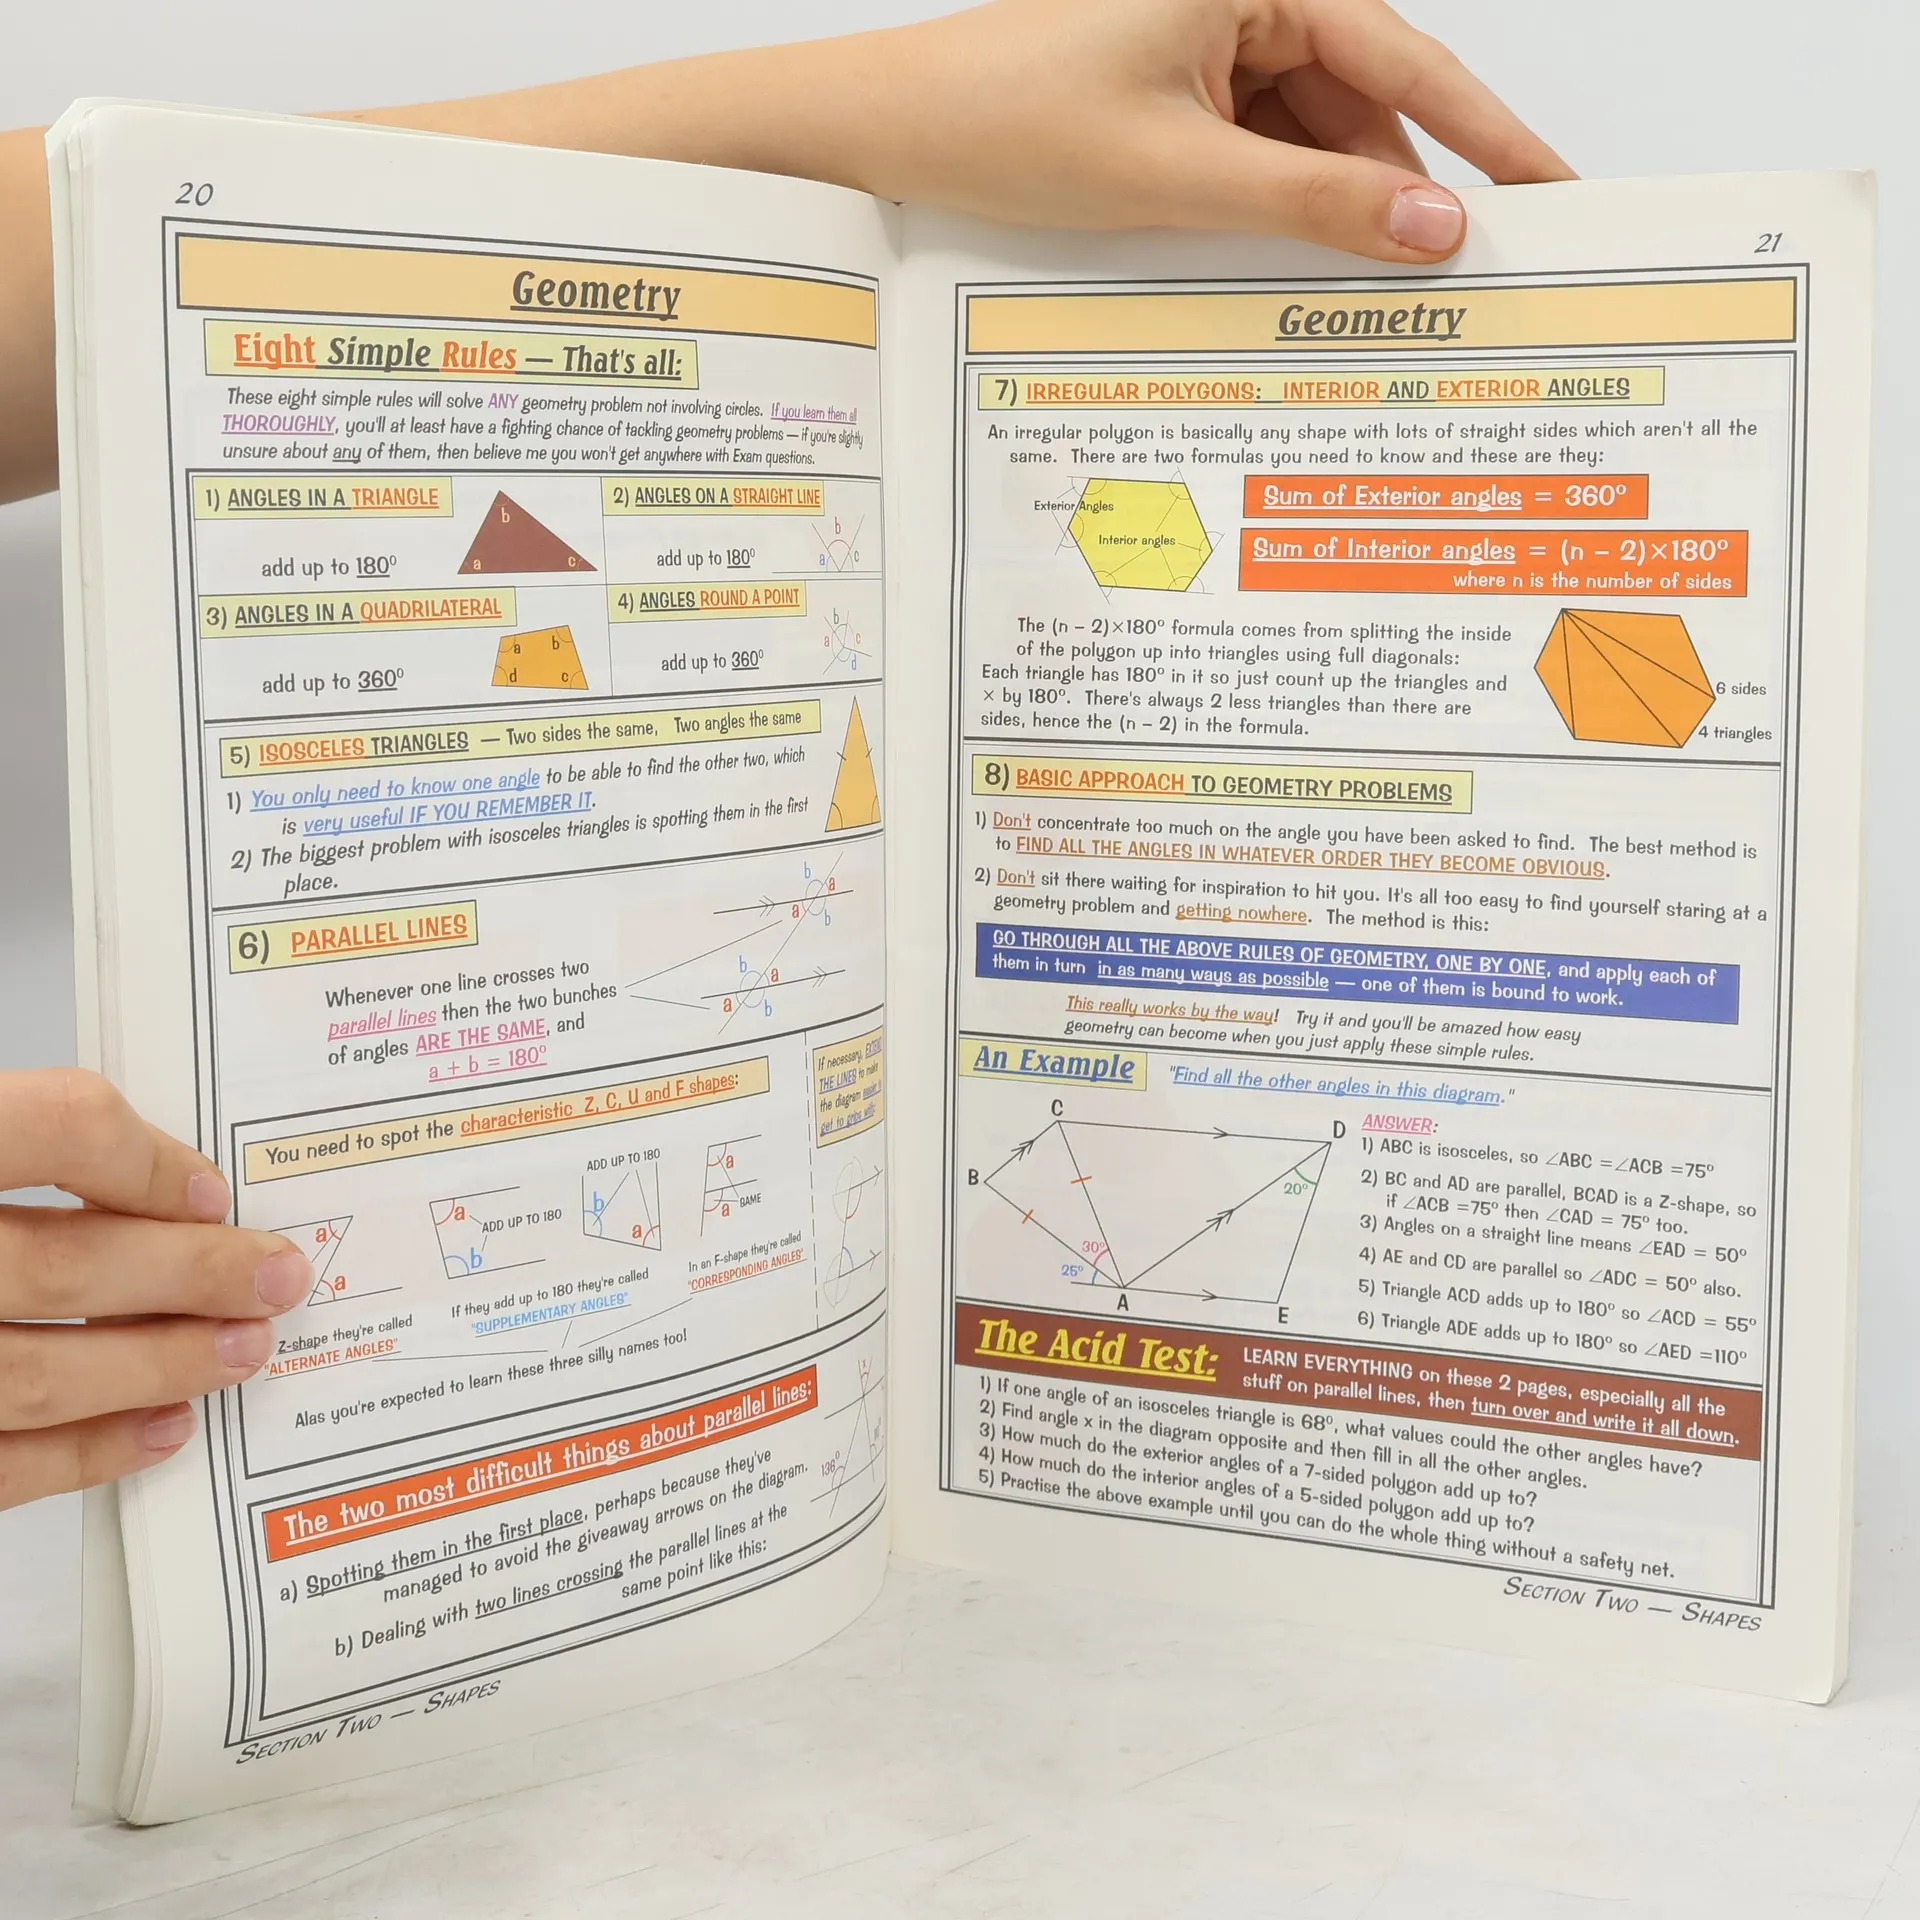 20
Geometry
Eight Simple Rules — That's all:
These eight simple rules will solve ANY geometry problem not involving circles. If you learn them all
THOROUGHLY, you'll at least have a fighting chance of tackling geometry problems — if you're slightly
unsure about any of them, then believe me you won't get anywhere with Exam questions.
1) ANGLES IN A TRIANGLE
add up to 180°
b
a
c
2) ANGLES ON A STRAIGHT LINE
add up to 180°
b
a
c
3) ANGLES IN A QUADRILATERAL
add up to 360°
a
b
d
c
4) ANGLES ROUND A POINT
add up to 360°
b
a
c
d
5) ISOSCELES TRIANGLES — Two sides the same, Two angles the same
1) You only need to know one angle to be able to find the other two, which
is very useful IF YOU REMEMBER IT.
2) The biggest problem with isosceles triangles is spotting them in the first
place.
6) PARALLEL LINES
Whenever one line crosses two
parallel lines then the two bunches
of angles ARE THE SAME, and
a + b = 180°
b
a
a
b
b
a
a
b
You need to spot the characteristic Z, C, U and F shapes:
If necessary, EXTEND
THE LINES to make
the diagram easier to
get to grips with:
a
a
a
ADD UP TO 180
b
ADD UP TO 180
b
a
a
SAME
a
Z-shape they're called
"ALTERNATE ANGLES"
If they add up to 180 they're called
"SUPPLEMENTARY ANGLES"
In an F-shape they're called
"CORRESPONDING ANGLES"
Alas you're expected to learn these three silly names too!
The two most difficult things about parallel lines:
a) Spotting them in the first place, perhaps because they've
managed to avoid the giveaway arrows on the diagram.
b) Dealing with two lines crossing the parallel lines at the
same point like this:
x
136°
SECTION TWO — SHAPES
21
Geometry
7) IRREGULAR POLYGONS: INTERIOR AND EXTERIOR ANGLES
An irregular polygon is basically any shape with lots of straight sides which aren't all the
same. There are two formulas you need to know and these are they:
Exterior Angles
Interior angles
Sum of Exterior angles = 360°
Sum of Interior angles = (n – 2)×180°
where n is the number of sides
The (n – 2)×180° formula comes from splitting the inside
of the polygon up into triangles using full diagonals:
Each triangle has 180° in it so just count up the triangles and
× by 180°. There's always 2 less triangles than there are
sides, hence the (n – 2) in the formula.
6 sides
4 triangles
8) BASIC APPROACH TO GEOMETRY PROBLEMS
1) Don't concentrate too much on the angle you have been asked to find. The best method is
to FIND ALL THE ANGLES IN WHATEVER ORDER THEY BECOME OBVIOUS.
2) Don't sit there waiting for inspiration to hit you. It's all too easy to find yourself staring at a
geometry problem and getting nowhere. The method is this:
GO THROUGH ALL THE ABOVE RULES OF GEOMETRY, ONE BY ONE, and apply each of
them in turn in as many ways as possible — one of them is bound to work.
This really works by the way! Try it and you'll be amazed how easy
geometry can become when you just apply these simple rules.
An Example
"Find all the other angles in this diagram."
C
D
B
20°
30°
25°
A
E
ANSWER:
1) ABC is isosceles, so ∠ABC = ∠ACB =75°
2) BC and AD are parallel, BCAD is a Z-shape, so
if ∠ACB =75° then ∠CAD = 75° too.
3) Angles on a straight line means ∠EAD = 50°
4) AE and CD are parallel so ∠ADC = 50° also.
5) Triangle ACD adds up to 180° so ∠ACD = 55°
6) Triangle ADE adds up to 180° so ∠AED =110°
The Acid Test:
LEARN EVERYTHING on these 2 pages, especially all the
stuff on parallel lines, then turn over and write it all down.
1) If one angle of an isosceles triangle is 68°, what values could the other angles have?
2) Find angle x in the diagram opposite and then fill in all the other angles.
3) How much do the exterior angles of a 7-sided polygon add up to?
4) How much do the interior angles of a 5-sided polygon add up to?
5) Practise the above example until you can do the whole thing without a safety net.
SECTION TWO — SHAPES